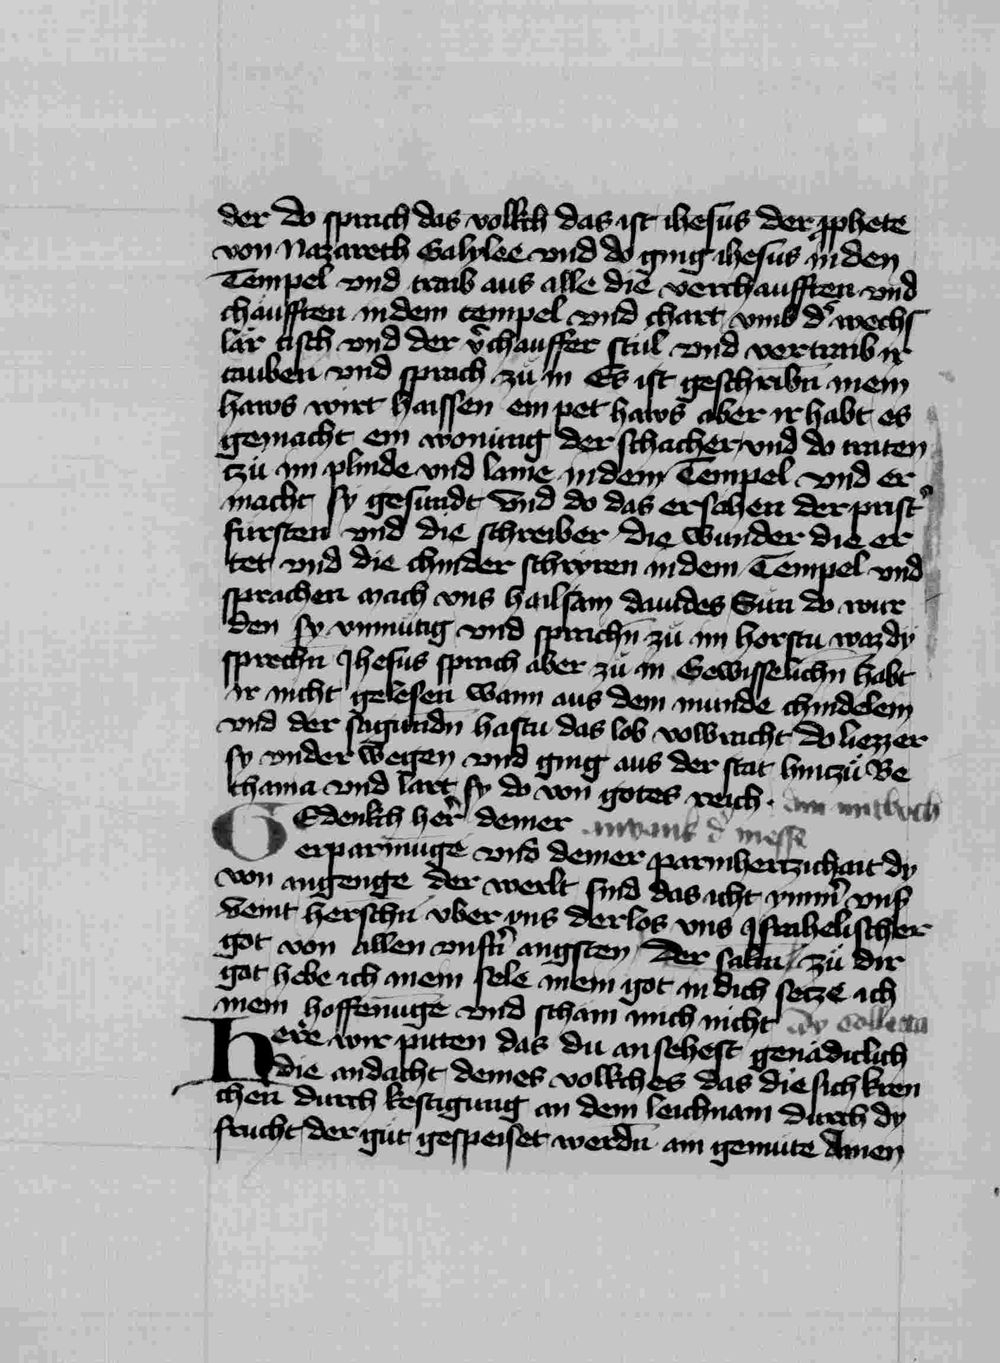 der do sprach das volkch das ist ihesus der pphete
von Nazareth Galylee vnd do ging ihesus in den
Tempel vnd traib aus alle die verchaufften vnd
chaufften in dem tempel vnd chart vmb d̾ wechs
lär tisch vnd der v̾chauffer stul vnd vertraib ir
tauben vnd sprach zů in Es ist geschribn̄ mein
haws wirt haissen ein pet haws aber ir habt es
gemacht ein wonung der schacher vnd do traten
zů im plinde vnd lame in dem Tempel vnd er
macht sy gesundt Vnd do das ersahen der prist̾
fursten vnd die schreiber die wunder die er
tet vnd die chinder schryren in dem Tempel vnd
sprachen mach vns hailsam dauides Sun do wur
den sy vnmutig vnd sprachn̄ zů im horstu waz dy
sprechn̄ Ihesus sprach aber zů in Gewisselichn̄ habt
ir nicht gelesen wann aus dem munde chindelein
vnd der saugundn̄ hastu das lob volbracht do liezzer
sy vnder wegen vnd ging aus der stat hinczů Be
thania vnd lart sy do von gotes reich . Am mitboch
GEdenkch her̾ deiner anvank d̾ messe
erparmūge vnd deiner parmhertzichait dy
von angenge der werlt sind das icht ymm̾ vns̾
veint herschn̄ vber vns derlos vns Israhelischer
got von allen vnsn̾ angsten Der salm zů dir
got hebe ich mein sele mein got in dich setze ich
mein hoffenūge vnd scham mich nicht Dy collecta
Here wir pitten das du ansehest genädiclich
die andacht deines volkches das die sich kren
chen durch kestigung an dem leichnam durch dy
frucht der gut gespeiset werdn̄ am gemute Amen